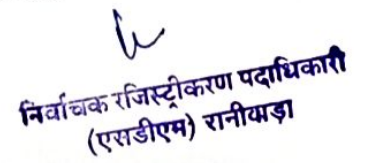 निर्वाचक रजिस्ट्रीकरण पदाधिकारी
(एसडीएम) रानीवाड़ा